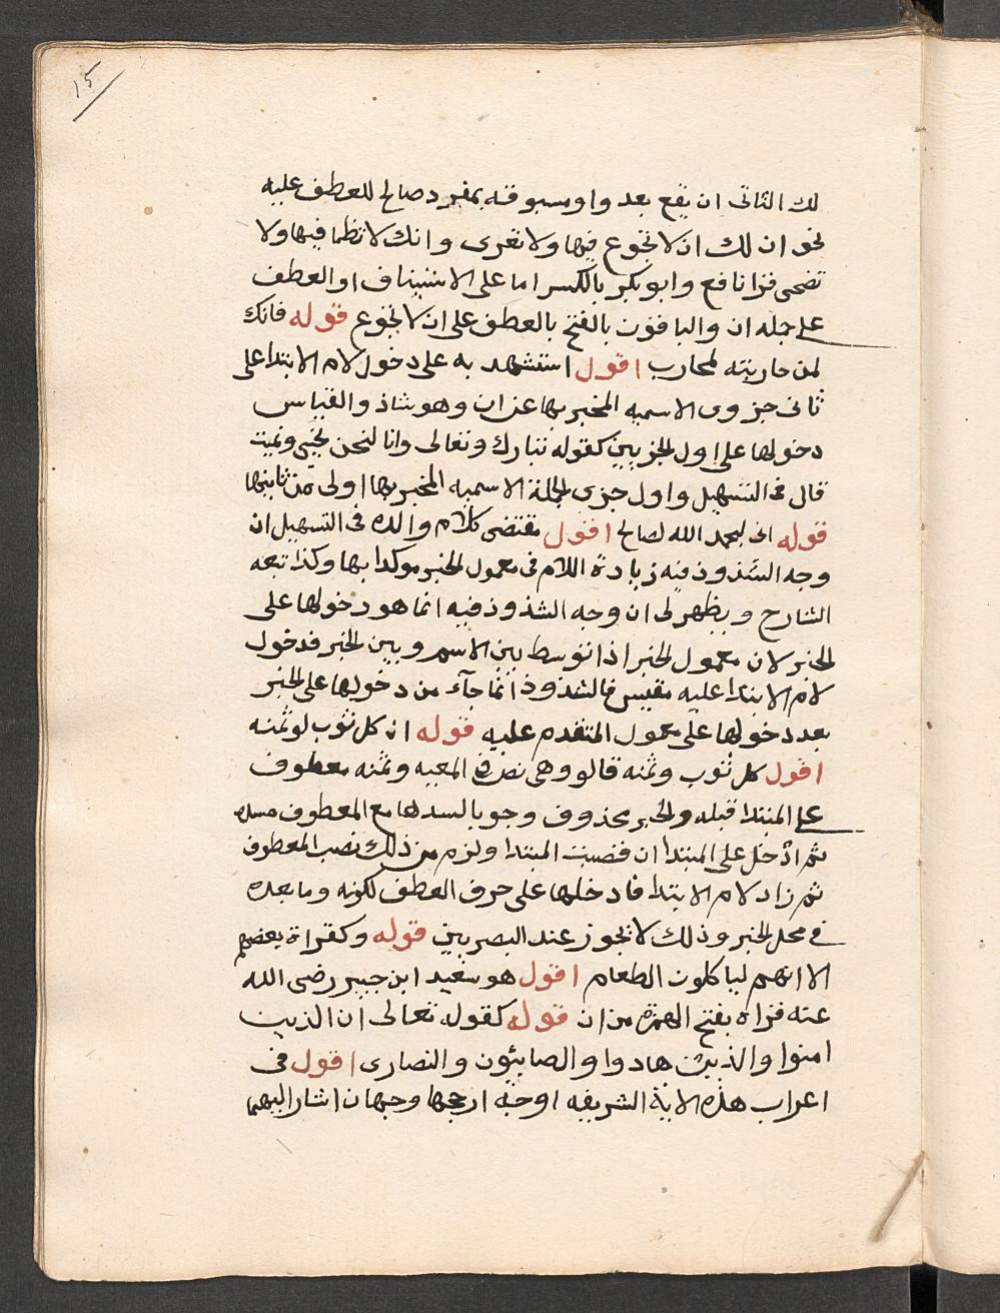 ١٥
لك الثانى ان يقع بعد واو مسبوقه بمفرد صالح للعطف عليه
نحو ان لك ان لا تجوع فيها ولا تعرى وانك لا تظما فيها ولا
تضحى قرا نافع وابو بكر بالكسر اما على الاستيناف او العطف
على جمله ان والباقون بالفتح بالعطف على ان لا تجوع قوله فانك
لمن حاربته لمحارب اقول استشهد به على دخول لام الابتدا على
ثانى جزوى الاسميه المخبر بها عن ان وهو شاذ والقياس
دخولها على اول الجزيين كقوله تبارك وتعالى وانا لنحن نحيى ونميت
قال فى التسهيل واول جزى الجملة الاسميه المخبر بها اولى من ثانيها
قوله انى لبحمد الله لصالح اقول مقتضى كلام والده فى التسهيل ان
وجه الشذوذ فيه زيادة اللام فى معمول الخبر موكدا بها وكذا تبعه
الشارح ويظهر لى ان وجه الشذوذ فيه انما هو دخولها على
الخبر لان معمول الخبر اذا توسط بين الاسم وبين الخبر فدخول
لام الابتدا عليه مقيس فالشذوذ انما جآء من دخولها على الخبر
بعد دخولها على معمول المتقدم عليه قوله ان كل ثوب لو ثمنه
اقول كل ثوب وثمنه قالوو هى نص فى المعيه وثمنه معطوف
على المبتدا قبله والخبر محذوف وجوبا لسدها مع المعطوف مسده
ثم ادخل على المبتدا ان فنصبت المبتدا ولزم من ذلك نصب المعطوف
ثم زاد لام الابتدا فادخلها على حرف العطف لكونه وما بعده
فى محل الخبر وذلك لا يجوز عند البصريين قوله وكقراة بعضهم
الا انهم لياكلون الطعام اقول هو سعيد ابن جبير رضى الله
عنه قراه بفتح الهمزه من ان قوله كقوله تعالى ان الذين
امنوا والذين هادوا والصابئون والنصارى اقول فى
اعراب هذه الاية الشريفه اوجه ارجحها وجهان اشار اليهما